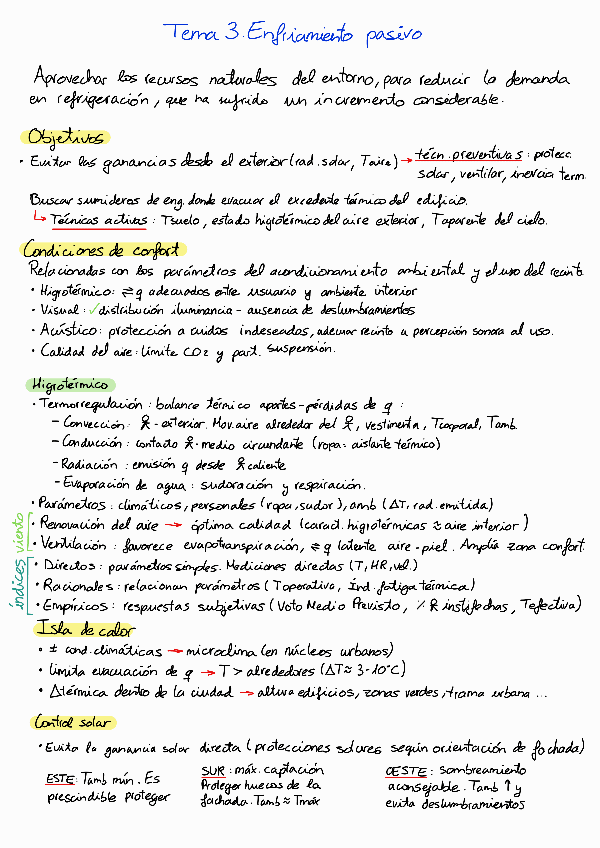 Tema 3. Enfriamiento pasivo
Aprovechar los recursos naturales del entorno, para reducir la demanda
en refrigeración, que ha sufrido un incremento considerable.
Objetivos
· Evitar las ganancias desde el exterior (rad. solar, Taire) → técn. preventivas: protecc.
solar, ventilar, inercia term.
Buscar sumideros de eng. donde evacuar el excedente térmico del edificio.
↳ Técnicas activas: Tsuelo, estado higrotérmico del aire exterior, Taparente del cielo.
Condiciones de confort
Relacionadas con los parámetros del acondicionamiento ambiental y el uso del recinto
· Higrotérmico: ⇌ q adecuados entre usuario y ambiente interior
· Visual: ✓ distribución iluminancia - ausencia de deslumbramientos
· Acústico: protección a ruidos indeseados, adecuar recinto a percepción sonora al uso.
· Calidad del aire: límite CO2 y part. suspensión.
Higrotérmico
· Termorregulación: balance térmico aportes-pérdidas de q:
- Convección: - exterior. Mov. aire alrededor del , vestimenta, Tcorporal, Tamb.
- Conducción: contacto - medio circundante (ropa = aislante térmico)
- Radiación: emisión q desde caliente
- Evaporación de agua: sudoración y respiración.
· Parámetros: climáticos, personales (ropa, sudor), amb (ΔT, rad. emitida)
viento
· Renovación del aire → óptima calidad (caract. higrotérmicas ≈ aire interior)
· Ventilación: favorece evapotranspiración, ⇌ q latente aire-piel. Amplía zona confort.
índices
· Directos: parámetros simples. Mediciones directas (T, HR, vel.)
· Racionales: relacionan parámetros (Toperativa, Índ. fatiga térmica)
· Empíricos: respuestas subjetivas (Voto Medio Previsto, % , Tefectiva)
Isla de calor
· ± cond. climáticas → microclima (en núcleos urbanos)
· limita evacuación de q → T > alrededores (ΔT ≈ 3-10°C)
· Δtérmica dentro de la ciudad → altura edificios, zonas verdes, trama urbana ...
Control solar
· Evita la ganancia solar directa (protecciones solares según orientación de fachada)
ESTE: Tamb mín. Es
prescindible proteger
SUR: máx. captación
Proteger huecos de la
fachada. Tamb ≈ Tmáx
OESTE: sombreamiento
aconsejable. Tamb ↑ y
evita deslumbramientos